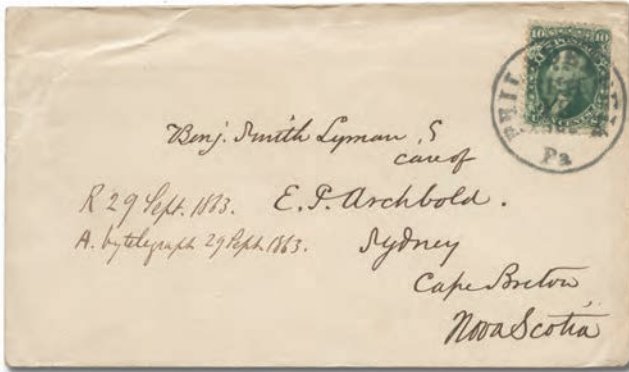 10 10
PHILADELPHIA
Pa
Benj. Smith Lyman,
care of
R 29 Sept. 1863. E. P. Archbold.
A. by telegraph 29 Sept. 1863. Sydney
Cape Breton
Nova Scotia